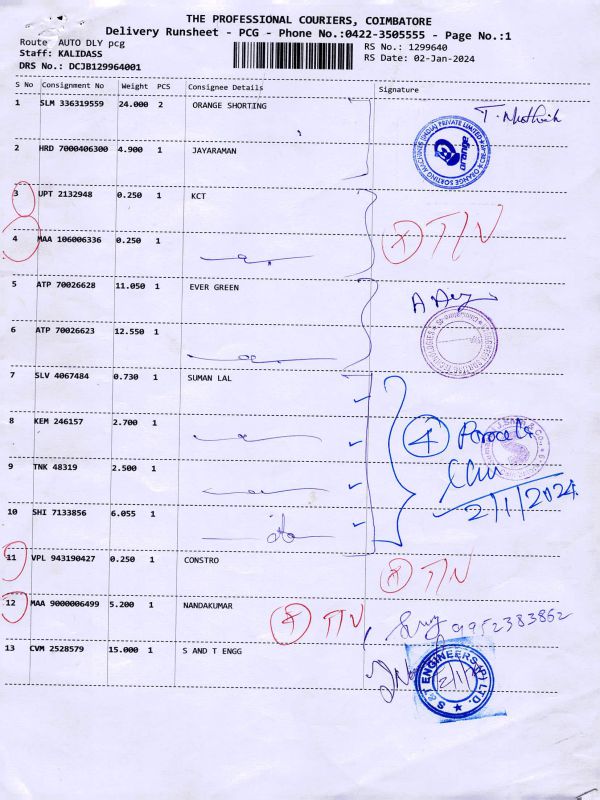 THE PROFESSIONAL COURIERS, COIMBATORE
Delivery Runsheet - PCG - Phone No.:0422-3505555 - Page No.:1
Route AUTO DLY pcg RS No.: 1299640
Staff: KALIDASS RS Date: 02-Jan-2024
DRS No.: DCJB129964001
S No Consignment No Weight PCS Consignee Details Signature
1 SLM 336319559 24.000 2 ORANGE SHORTING
2 HRD 7000406300 4.900 1 JAYARAMAN
3 UPT 2132948 0.250 1 KCT
T/N
4 MAA 106006336 0.250 1
5 ATP 70026628 11.050 1 EVER GREEN
6 ATP 70026623 12.550 1
7 SLV 4067484 0.730 1 SUMAN LAL
8 KEM 246157 2.700 1
4 Parcels
9 TNK 48319 2.500 1
2/1/2024
10 SHI 7133856 6.055 1
11 VPL 943190427 0.250 1 CONSTRO T/N
12 MAA 9000006499 5.200 1 NANDAKUMAR T/N 9952383862
13 CVM 2528579 15.000 1 S AND T ENGG
S & T ENGINEERS (P) LTD.